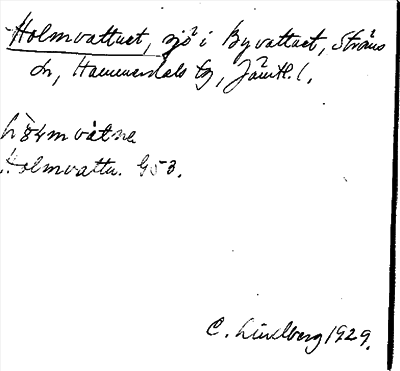 Holmvattnet, sjö i Byvattnet, Ströms
sn, Hammerdals tg, Jämtl. l.
Holmvattn. G53.
C. Lindberg 1929.